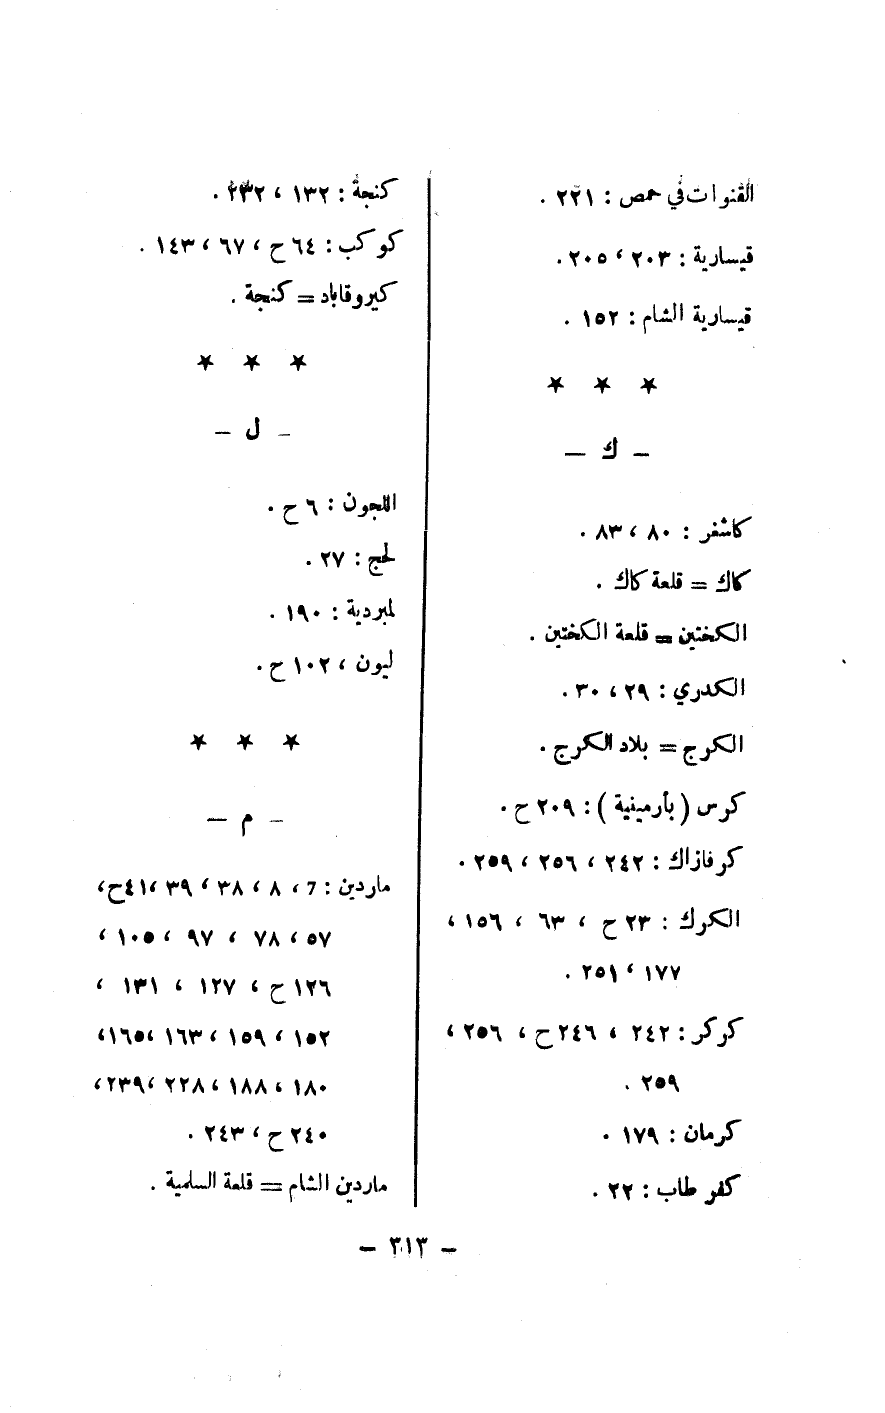 القنوات في حمص : ٢٢١ .
قيسارية : ٢٠٣ ، ٢٠٥ .
قيسارية الشام : ١٥٢ .
* * *
- ك -
كاشغر : ٨٠ ، ٨٣ .
كاك = قلعة كاك .
الكختين = قلعة الكختين .
الكدري : ٢٩ ، ٣٠ .
الكرج = بلاد الكرج .
كرس ( بأرمينية ) : ٢٠٩ ح .
كرفازاك : ٢٤٢ ، ٢٥٦ ، ٢٥٩ .
الكرك : ٢٣ ح ، ٦٣ ، ١٥٦ ،
١٧٧ ، ٢٥١ .
كركر : ٢٤٢ ، ٢٤٦ ح ، ٢٥٦ ،
٢٥٩ .
كرمان : ١٧٩ .
كفر طاب : ٢٢ .
كنجة : ١٣٢ ، ٢٣٢ .
كوكب : ٦٤ ح ، ٦٧ ، ١٤٣ .
كيروقاباد = كنجة .
* * *
- ل -
اللجون : ٦ ح .
لحج : ٢٧ .
لمبردية : ١٩٠ .
ليون ، ١٠٢ ح .
* * *
- م -
ماردين : 7 ، ٨ ، ٣٨ ، ٣٩ ، ٤١ ح ،
٥٧ ، ٧٨ ، ٩٧ ، ١٠٥ ،
١٢٦ ح ، ١٢٧ ، ١٣١ ،
١٥٢ ، ١٥٩ ، ١٦٣ ، ١٦٥ ،
١٨٠ ، ١٨٨ ، ٢٢٨ ، ٢٣٩ ،
٢٤٠ ح ، ٢٤٣ .
ماردين الشام = قلعة السلمية .
- ٣١٣ -